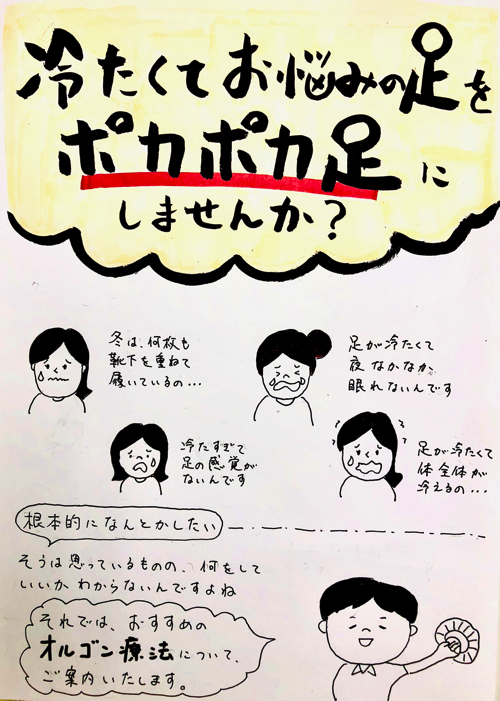 冷たくてお悩みの足を
ポカポカ足に
しませんか?
冬は、何枚も
靴下を重ねて
履いているの…
足が冷たくて
夜なかなか
眠れないんです
冷たすぎて
足の感覚が
ないんです
足が冷たくて
体全体が
冷えるの…
根本的になんとかしたい
そうは思っているものの、何をして
いいかわからないんですよね
それでは、おすすめの
オルゴン療法について、
ご案内いたします。